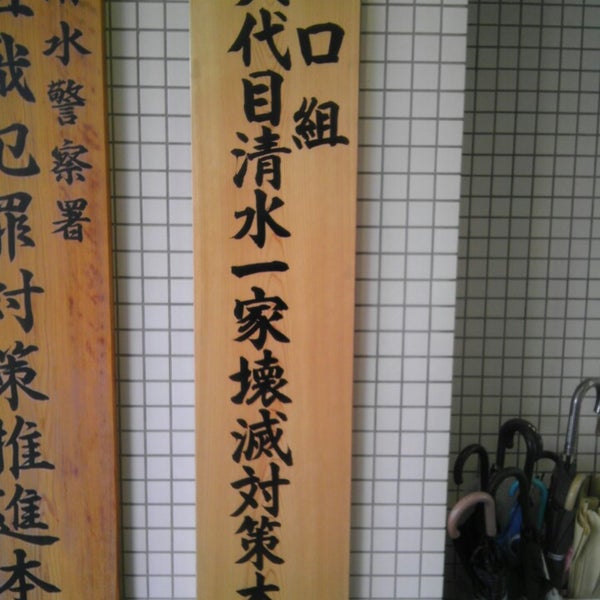 口組
代目清水一家壊滅対策本
水警察署
織犯罪対策推進本